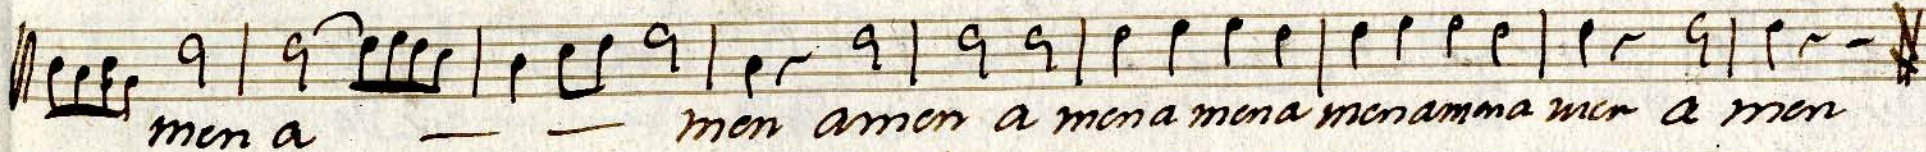 men a — — men amen a mena mena menamena men a men